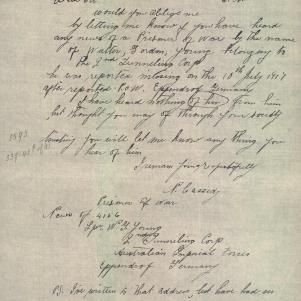 Dear Sir
would you oblige me
by letting me know if you have heard
any news of a Prisoner of War by the name
of Walter, Gordon, Young, belonging to
the 2nd Tunneling Corp
he was reported missing on the 10th July 1917
after reported P.O.W. Eppendorf Germany
I have heard nothing of him from him
but thought you may of through your society
trusting you will let me know any thing you
hear of him
I remain yours respectfully
N. Cassidy
Prisoner of War
News of 4106
Spr. W. G. Young
2nd Tunneling Corp
Australian Imperial Forces
Eppendorf Germany
P.S. I've written to that address, but have had no